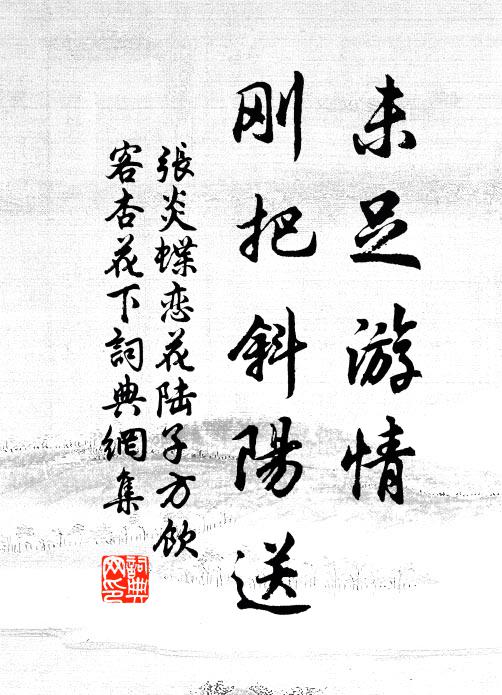 未足游情
刚把斜陽送
張炎蝶恋花陆子方飲
客杏花下詞典網集
詞典
网印